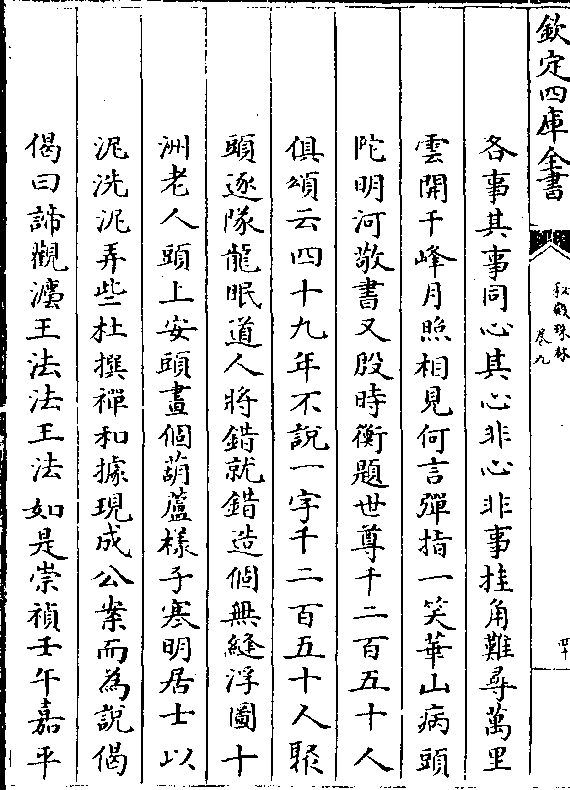 欽定四庫全書
秘殿珠林
卷九
四十
各事其事同心其心非心非事挂角難尋萬里
雲開千峰月照相見何言彈指一笑華山病頭
陀明河敬書又殷時衡題世尊千二百五十人
俱頌云四十九年不說一字千二百五十人聚
頭逐隊龍眠道人將錯就錯造個無縫浮圖十
洲老人頭上安頭畫個葫蘆様子寒明居士以
泥洗泥弄些杜撰禪和據現成公案而為說偈
偈曰諦觀灋王法法王法如是崇禎壬午嘉平